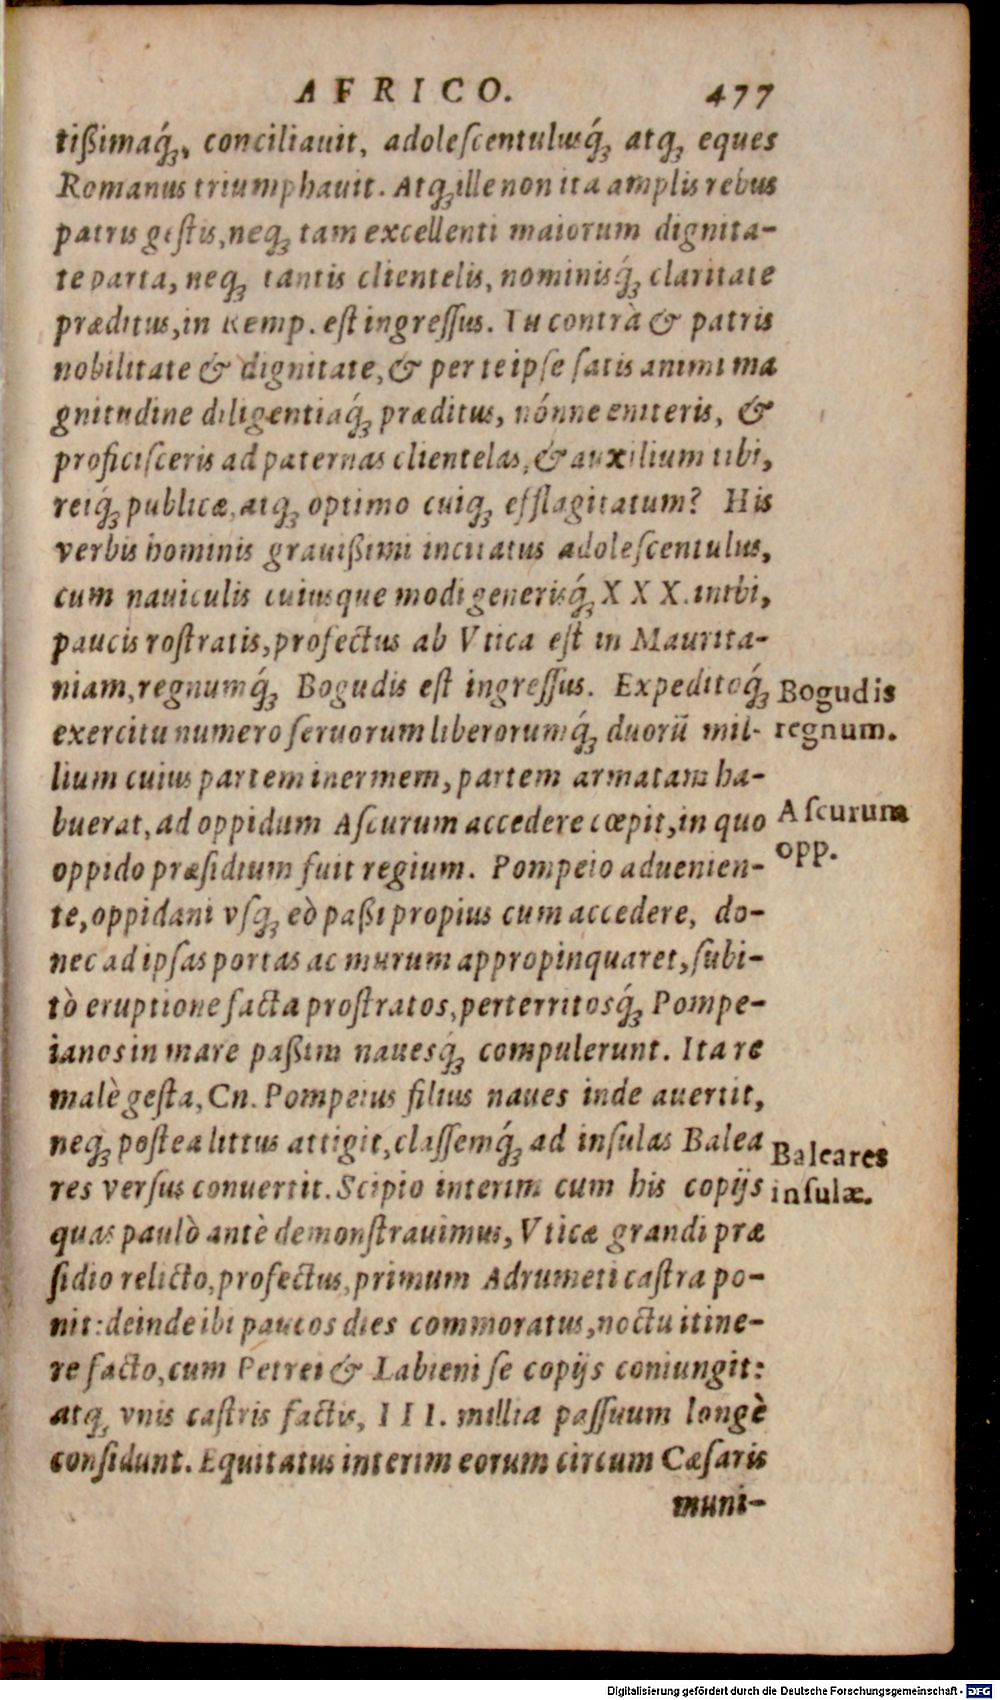 AFRICO. 477
tißimaq́ꝫ, conciliauit, adoleſcentulusq́ꝫ atqꝫ eques
Romanus triumphauit. Atqꝫ ille non ita amplis rebus
patris geſtis, neqꝫ tam excellenti maiorum dignita-
te parta, neqꝫ tantis clientelis, nominisq́ꝫ claritate
præditus, in Remp. eſt ingreſſus. Tu contrà & patris
nobilitate & dignitate, & per te ipſe ſatis animi ma
gnitudine diligentiaq́ꝫ præditus, nónne eniteris, &
proficiſceris ad paternas clientelas, & auxilium tibi,
reiq́ꝫ publicæ, atqꝫ optimo cuiqꝫ efflagitatum? His
verbis hominis grauißimi incitatus adoleſcentulus,
cum nauiculis cuiusque modi generisq́ꝫ XXX. intbi,
paucis roſtratis, profectus ab Vtica eſt in Maurita-
niam, regnumq́ꝫ Bogudis eſt ingreſſus. Expeditoq́ꝫ
Bogudis
regnum.
exercitu numero ſeruorum liberorumq́ꝫ duorũ mil-
lium cuius partem inermem, partem armatam ha-
buerat, ad oppidum Aſcurum accedere cœpit, in quo
Aſcurum
opp.
oppido præſidium fuit regium. Pompeio aduenien-
te, oppidani vſqꝫ eò paßi propius cum accedere, do-
nec ad ipſas portas ac murum appropinquaret, ſubi-
tò eruptione facta proſtratos, perterritosq́ꝫ Pompe-
ianos in mare paßim nauesq́ꝫ compulerunt. Ita re
malè geſta, Cn. Pompeius filius naues inde auertit,
neqꝫ poſtea littus attigit, claſſemq́ꝫ ad inſulas Balea
Baleares
inſulæ.
res verſus conuertit. Scipio interim cum his copijs
quas paulò antè demonſtrauimus, Vticæ grandi præ
ſidio relicto, profectus, primum Adrumeti caſtra po-
nit: deinde ibi paucos dies commoratus, noctu itine-
re facto, cum Petrei & Labieni ſe copijs coniungit:
atqꝫ vnis caſtris factis, III. millia paſſuum longè
conſidunt. Equitatus interim eorum circum Cæſaris
muni-
Digitalisierung gefördert durch die Deutsche Forschungsgemeinschaft - DFG